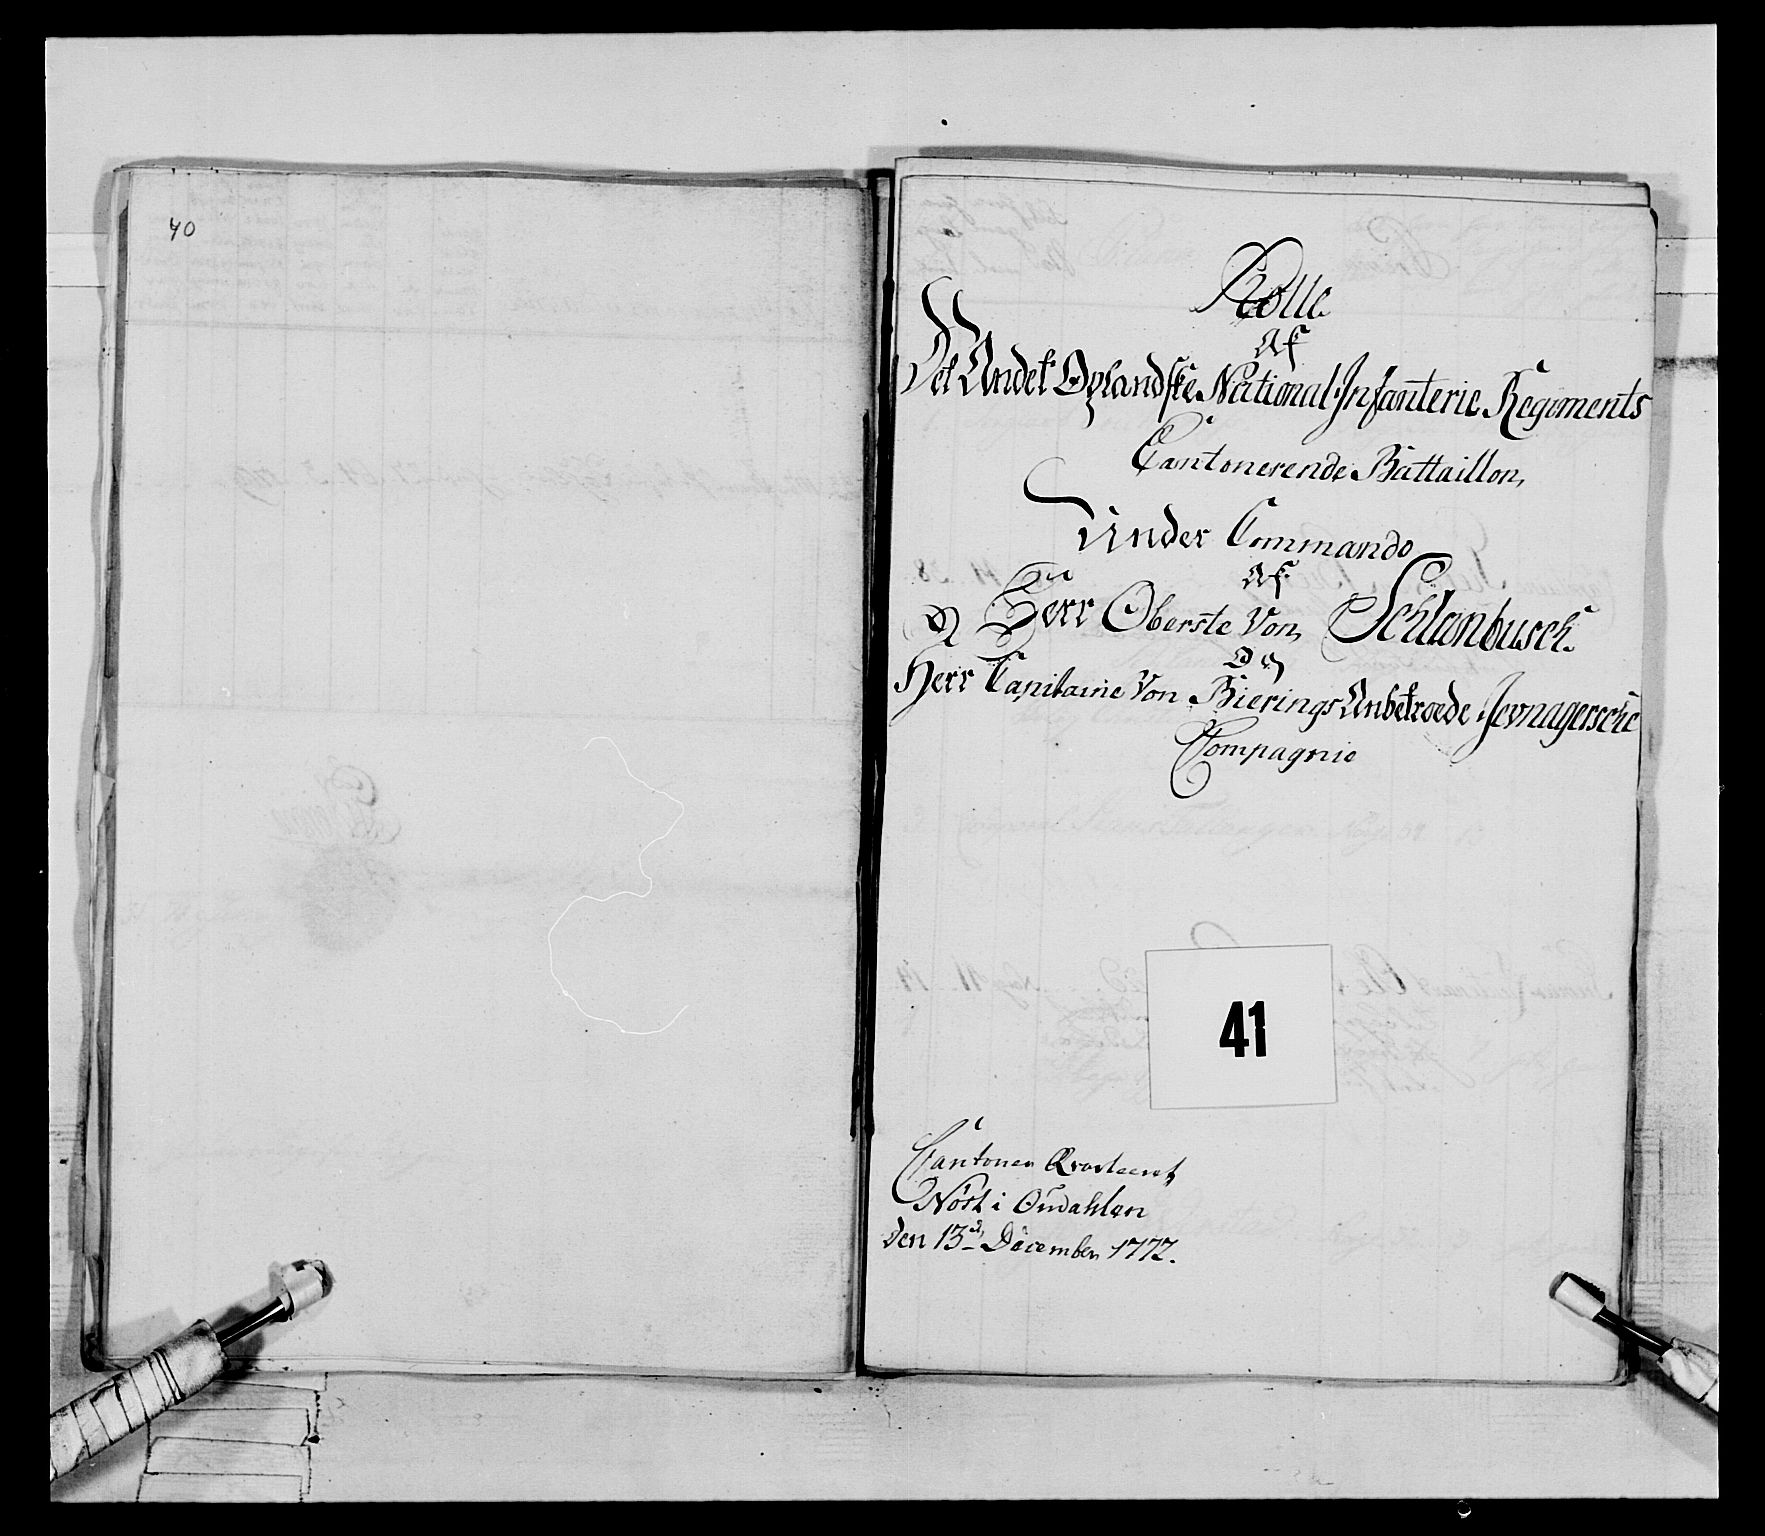 40
Rolle
Af
Det Andet Oplandske National Infanterie Regiments
Cantonerende Battaillon,
Under Commando
Af
Herr Oberste Von Schlanbusch.
Og
Herr Capitaine Von Bierings Anbetroede Jevnagersche
Compagnie
41
Cantoner Qvarteeret
Nöst i Oudahlen
Den 13de December 1772.